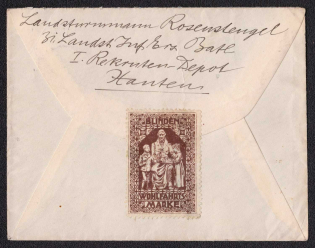 Landsturmmann Rosenstengel
Landst. Inf. Ers. Batl
I. Rekruten Depot
Xanten
BLINDEN
WOHLFAHRTS
MARKE